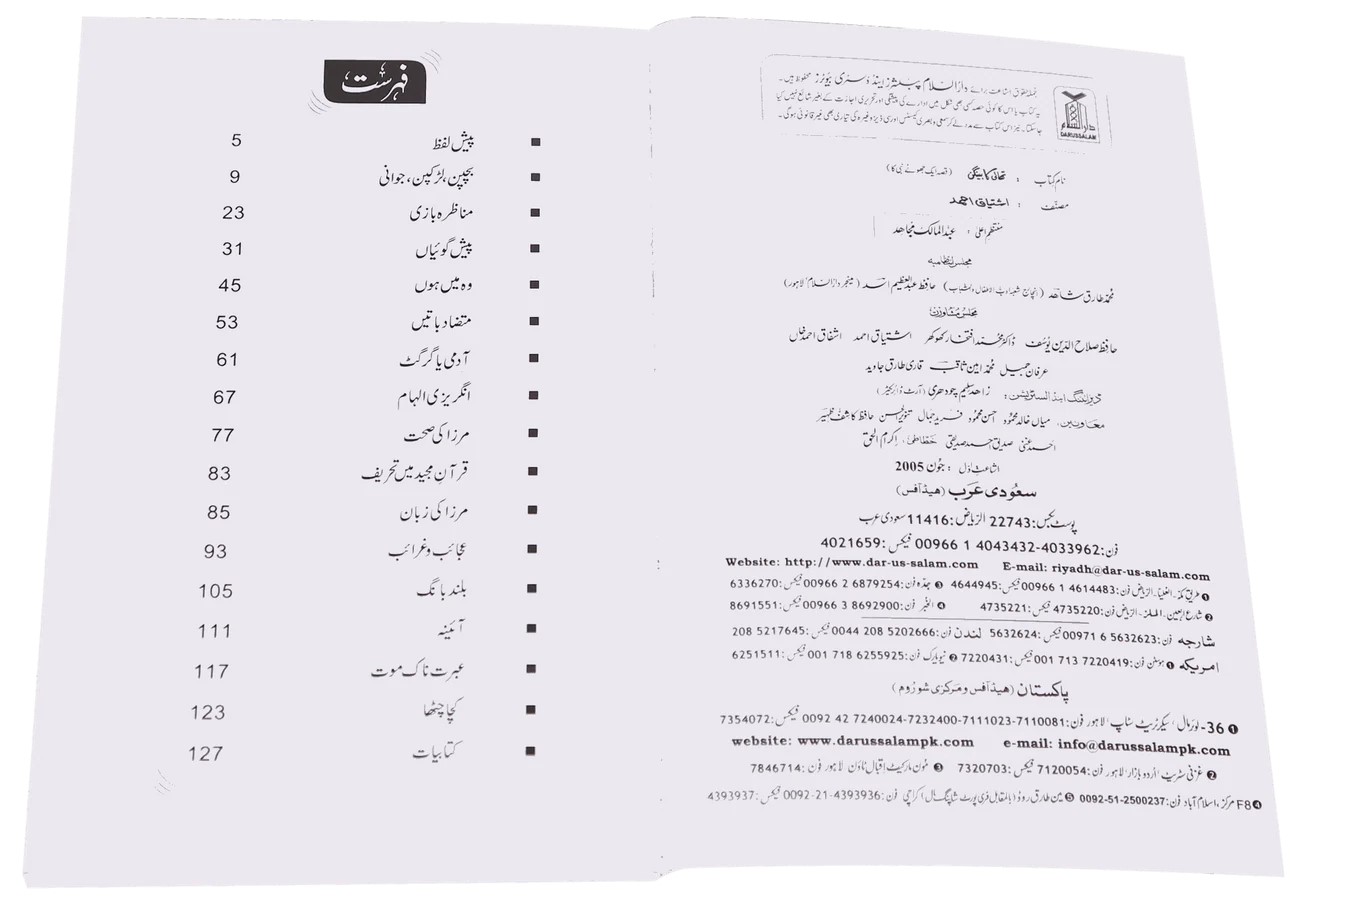 جملہ حقوق اشاعت برائے دارالسلام پبلشرز اینڈ ڈسٹری بیوٹرز محفوظ ہیں۔
یہ کتاب یا اس کا کوئی حصہ کسی بھی شکل میں ادارے کی پیشگی اور تحریری اجازت کے بغیر شائع نہیں کیا
جاسکتا۔ نیز اس کتاب سے مدد لے کر سمعی و بصری کیسٹس اور سی ڈیز وغیرہ کی تیاری بھی غیر قانونی ہوگی۔
دارالسلام
DARUSSALAM
نام کتاب : تھالی کا بینگن (قصہ ایک جھوٹے نبی کا)
مصنف : اشتیاق احمد
منتظم اعلیٰ : عبدالمالک مجاہد
مجلس انتظامیہ
محمد طارق شاہد (انچارج شعبہ ادب الاطفال والشباب) حافظ عبدالعظیم اسد (مینجر دارالسلام لاہور)
مجلس مشاورت
حافظ صلاح الدین یوسف ڈاکٹر محمد افتخار کھوکھر اشتیاق احمد اشفاق احمد خاں
عرفان جمیل محمد امین ثاقب قاری طارق جاوید
ڈیزائننگ اینڈ السٹریشن: زاہد سلیم چودھری (آرٹ ڈائریکٹر)
معاونین: میاں خالد محمود حسن محمود فرید جمال تنویر حسن حافظ کاشف ظہیر
احمد غنی صدیق احمد صدیقی خطاطی: اکرام الحق
اشاعت اول : جون 2005
سعودی عرب (ہیڈ آفس)
پوسٹ بکس: 22743 الریاض: 11416 سعودی عرب
فون: 00966 1 4043432-4033962 فیکس: 4021659
Website: http://www.dar-us-salam.com E-mail: riyadh@dar-us-salam.com
❶ طریق مکہ۔ العلیا۔ الریاض فون: 00966 1 4614483 فیکس: 4644945 ❸ جدہ فون: 00966 2 6879254 فیکس: 6336270
❷ شارع اربعین۔ الملز۔ الریاض فون: 4735220 فیکس: 4735221 ❹ الخبر فون: 00966 3 8692900 فیکس: 8691551
شارجہ فون: 00971 6 5632623 فیکس: 5632624 لندن فون: 0044 208 5202666 فیکس: 208 5217645
امریکہ ❶ ہوسٹن فون: 001 713 7220419 فیکس: 7220431 ❷ نیویارک فون: 001 718 6255925 فیکس: 6251511
پاکستان (ہیڈ آفس و مرکزی شوروم)
❶ 36- لوئر مال، سیکرٹریٹ سٹاپ لاہور فون: 0092 42 7240024-7232400-7111023-7110081 فیکس: 7354072
website: www.darussalampk.com e-mail: info@darussalampk.com
❷ غزنی سٹریٹ اردو بازار لاہور فون: 7120054 فیکس: 7320703 ❸ مون مارکیٹ اقبال ٹاؤن لاہور فون: 7846714
❹ F8 مرکز، اسلام آباد فون: 0092-51-2500237 ❺ مین طارق روڈ (بالمقابل فری پورٹ شاپنگ مال) کراچی فون: 0092-21-4393936 فیکس: 4393937
فہرست
پیش لفظ 5
بچپن، لڑکپن، جوانی 9
مناظرہ بازی 23
پیش گوئیاں 31
وہ میں ہوں 45
متضاد باتیں 53
آدمی یا گرگٹ 61
انگریزی الہام 67
مرزا کی صحت 77
قرآن مجید میں تحریف 83
مرزا کی زبان 85
عجائب و غرائب 93
بلند بانگ 105
آئینہ 111
عبرت ناک موت 117
کچا چٹھا 123
کتابیات 127